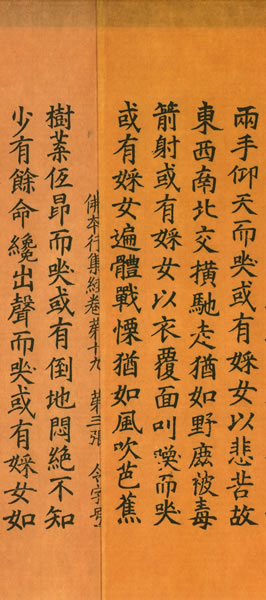 兩手仰天而哭或有婇女以悲苦故
東西南北交橫馳走猶如野鹿被毒
箭射或有婇女以衣覆面叫㘁而哭
或有婇女遍體戰慄猶如風吹芭蕉
佛本行集經卷第十九 第三張 令字号
樹葉伍昂而哭或有倒地悶絕不知
少有餘命纔出聲而哭或有婇女如